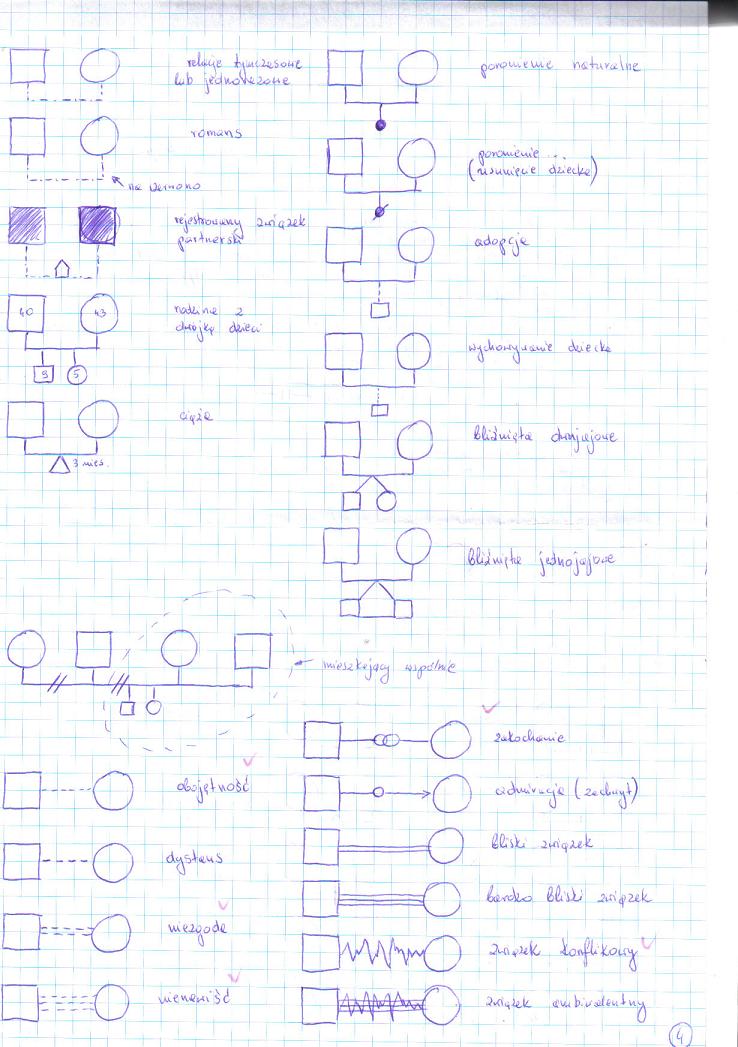 relacje tymczasowe
lub jednorazowe
romans
na pewno
rejestrowany związek
partnerski
40
43
rodzina z
dwójką dzieci
9
5
ciąża
3 mies.
poronienie naturalne
poronienie ...
(usunięcie dziecka)
adopcja
wychowywanie dziecka
bliźnięta dwujajowe
bliźnięta jednojajowe
mieszkający wspólnie
obojętność
dystans
niezgoda
nienawiść
zakochanie
admiracja (zachwyt)
bliski związek
bardzo bliski związek
związek konflikowy
związek ambiwalentny
4